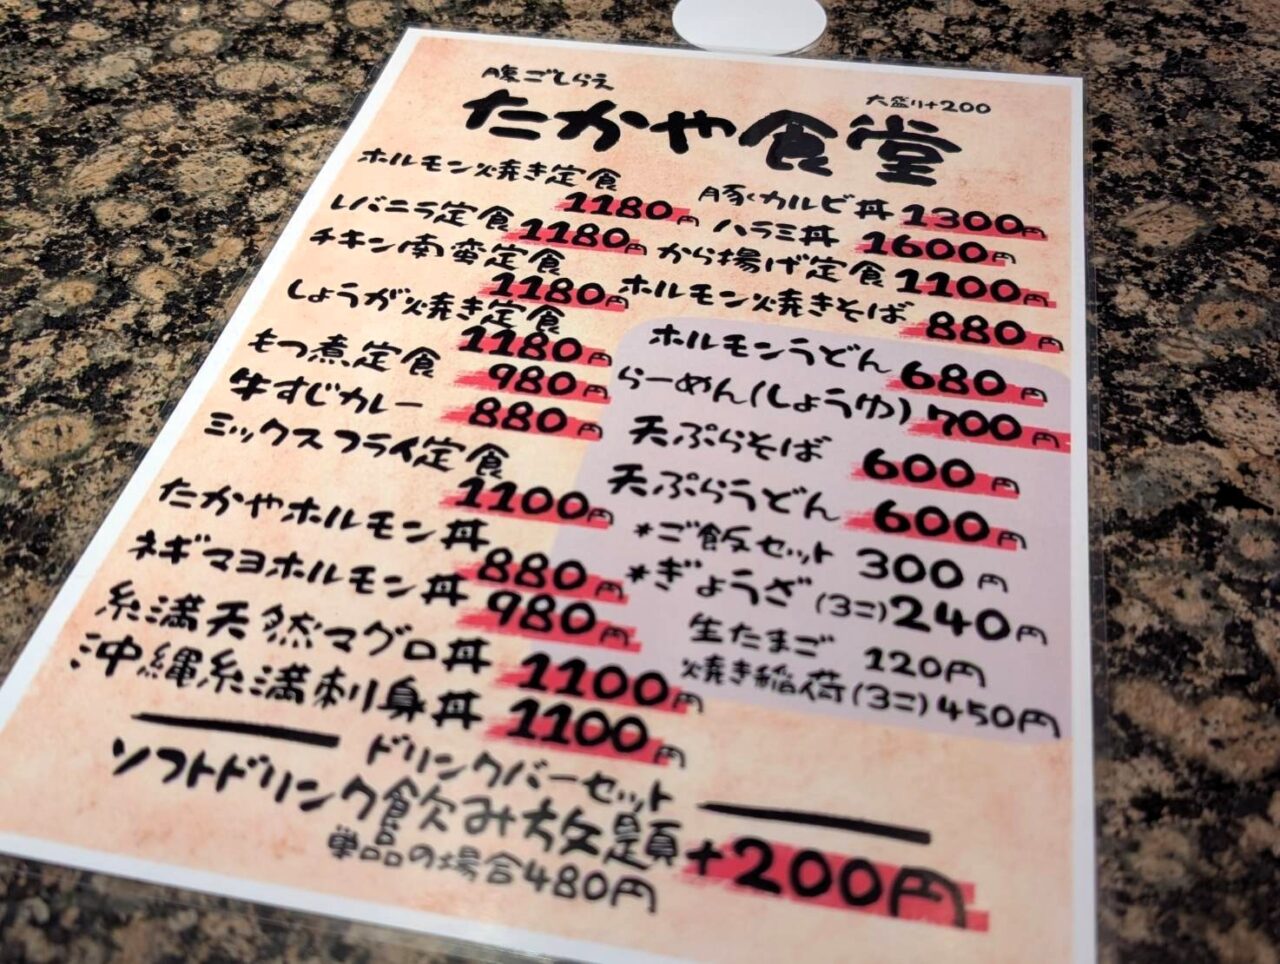 腹ごしらえ
大盛り+200
たかや食堂
ホルモン焼き定食
1180円
レバニラ定食 1180円
チキン南蛮定食
1180円
しょうが焼き定食
1180円
もつ煮定食 980円
牛すじカレー 880円
ミックスフライ定食
1100円
たかやホルモン丼
880円
ネギマヨホルモン丼 980円
糸満天然マグロ丼 1100円
沖縄糸満刺身丼 1100円
豚カルビ丼 1300円
ハラミ丼 1600円
から揚げ定食 1100円
ホルモン焼きそば 880円
ホルモンうどん 680円
らーめん(しょうゆ) 700円
天ぷらそば 600円
天ぷらうどん 600円
*ご飯セット 300円
*ぎょうざ(3コ) 240円
生たまご 120円
焼き稲荷(3コ) 450円
ドリンクバーセット
ソフトドリンク飲み放題 +200円
単品の場合480円